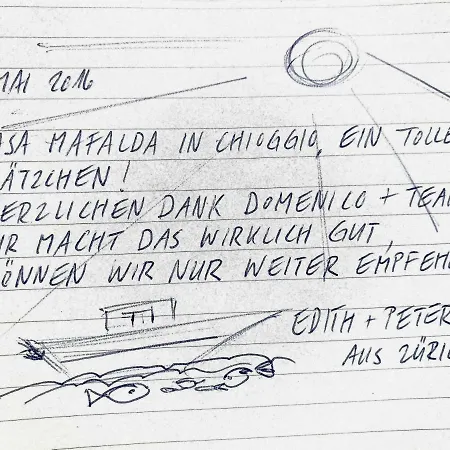 MAI 2016
ASA MAFALDA IN CHIOGGIO, EIN TOLLE
ÄTZCHEN!
ERZLICHEN DANK DOMENICO + TEA
IR MACHT DAS WIRKLICH GUT,
ÖNNEN WIR NUR WEITER EMPFEH
EDITH + PETER
AUS ZÜRI